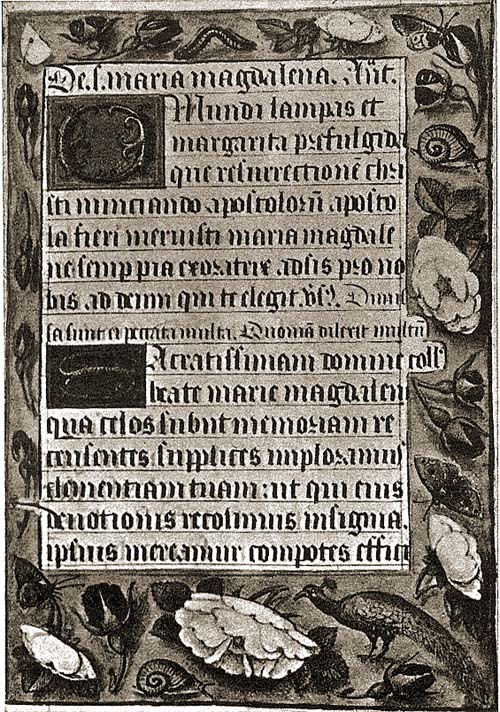 De s. maria magdalena. Añt.
O Mundi lampas et
margarita prefulgida
que resurrectionē chri
sti nunciando apostolorū aposto
la fieri meruisti maria magdale
ne semp pia exoratrix adsis pro no
bis ad deum qui te elegit. Vs. Dimis
sa sunt ei peccata multa. Quoniā dilexit multū
Sacratissimam domine coll
beate marie magdalen
qua celos subiit memoriam re
censentes supplices imploramus
clementiam tuam: ut qui eius
deuotionis recolimus insignia.
ipsius mereamur compotes effici